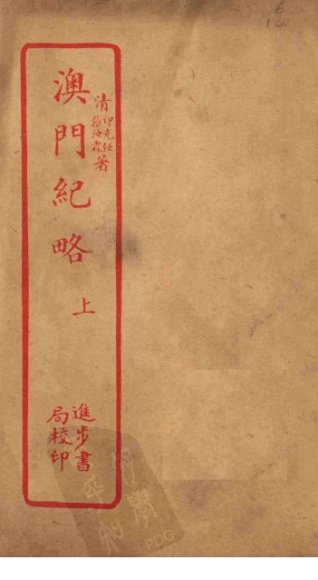 澳門紀略 上
清 印光任 張汝霖 著
進步書局校印
6
PDG